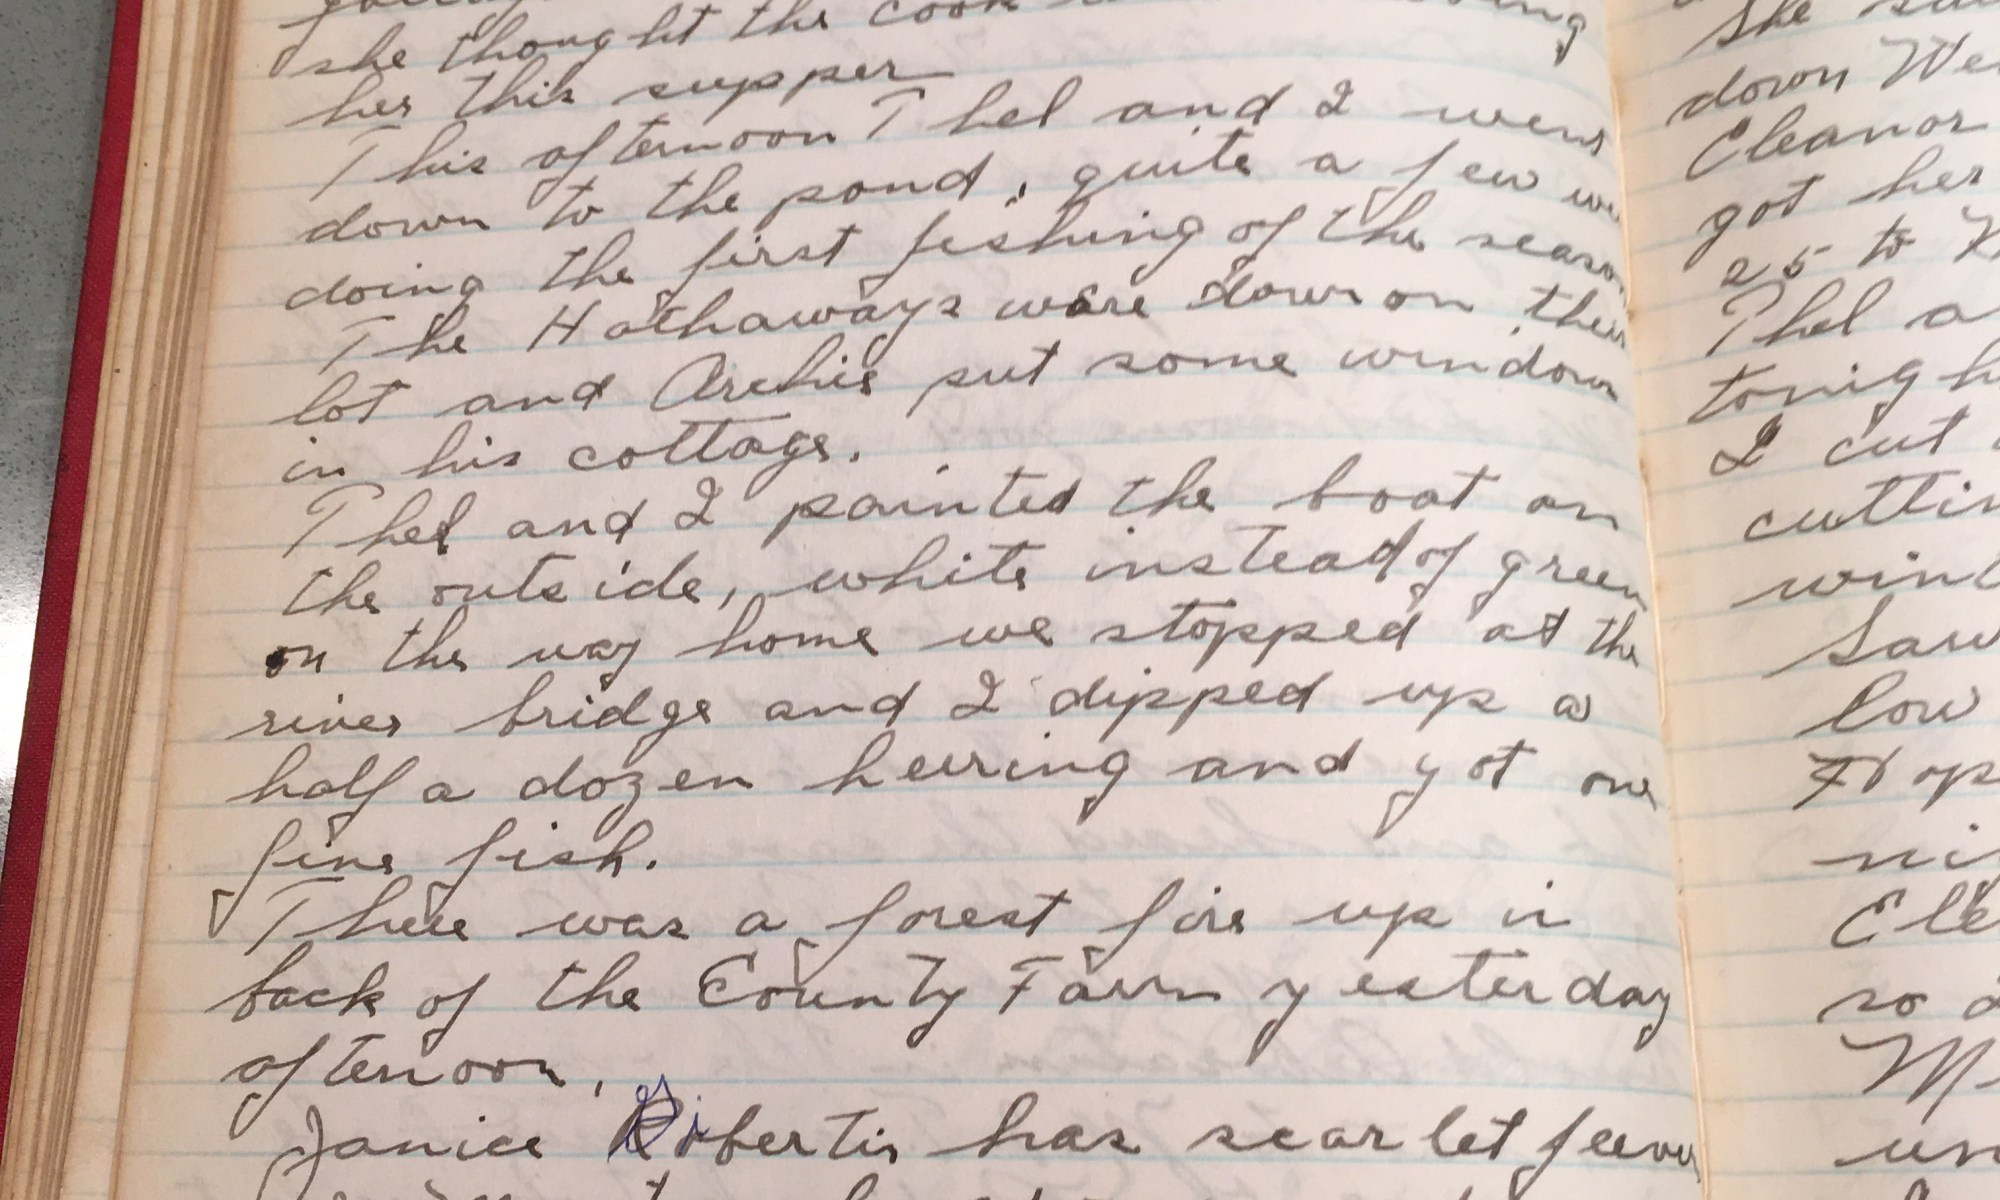 she thought the cook
her this supper
This afternoon Thel and I went
down to the pond, quite a few
doing the first fishing of the season
The Hathaways ware down on their
lot and Archie put some windows
in his cottage.
Thel and I painted the boat on
the outside, white instead of green
on the way home we stopped at the
river bridge and I dipped up a
half a dozen heering and got one
fine fish.
There was a forest fire up in
back of the County Farm yesterday
afternoon,
Janice has scarlet feever
She
down
Eleanor
got her
25 to
Thel a
I cut
low
so